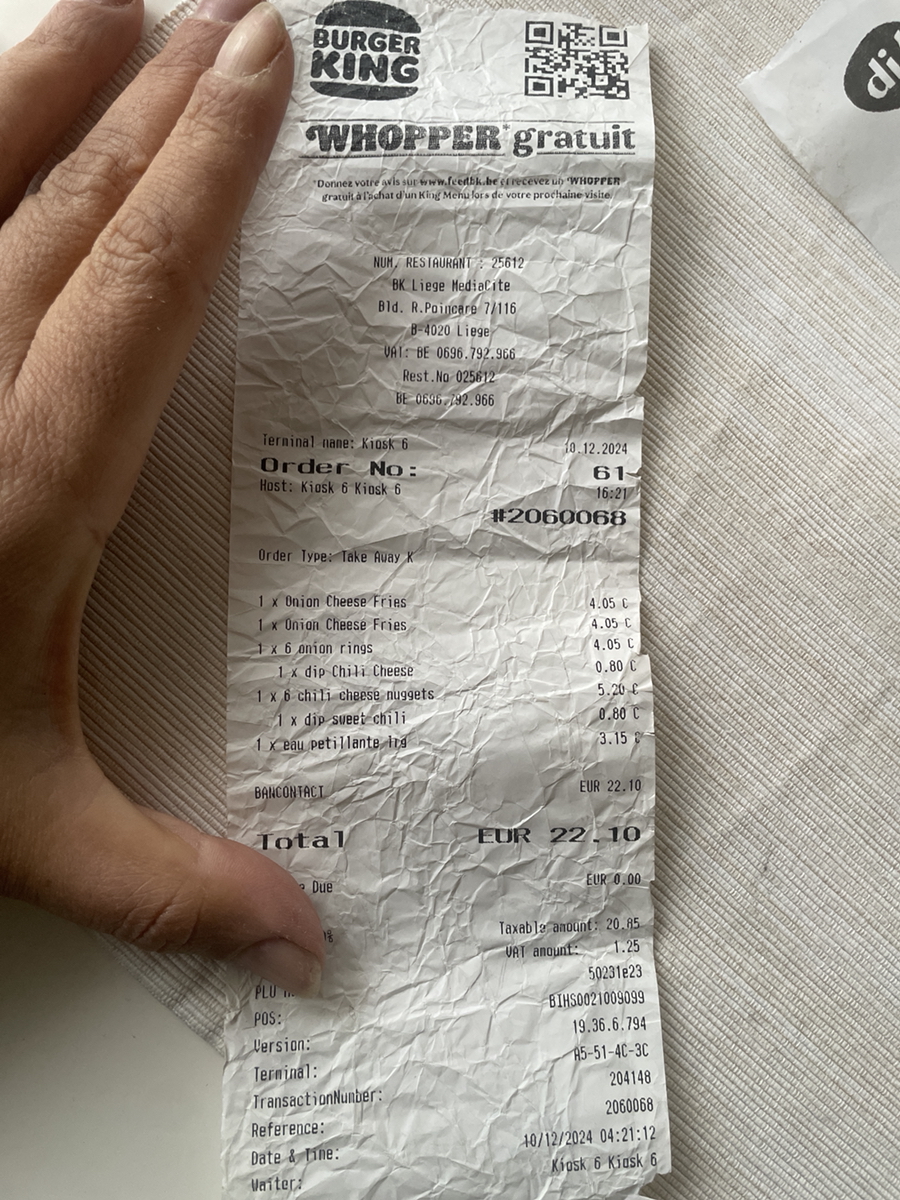 BURGER
KING
WHOPPER* gratuit
*Donnez votre avis sur www.feedbk.be et recevez un WHOPPER
gratuit à l'achat d'un King Menu lors de votre prochaine visite.
NUM. RESTAURANT : 25612
BK Liege MediaCite
Bld. R.Poincaré 7/116
B-4020 Liege
VAT: BE 0696.792.966
Rest.No 025612
BE 0696.792.966
Terminal name: Kiosk 6 10.12.2024
Order No: 61
Host: Kiosk 6 Kiosk 6 16:21
#2060068
Order Type: Take Away K
1 x Onion Cheese Fries 4.05 C
1 x Onion Cheese Fries 4.05 C
1 x 6 onion rings 4.05 C
1 x dip Chili Cheese 0.80 C
1 x 6 chili cheese nuggets 5.20 C
1 x dip sweet chili 0.80 C
1 x eau petillante lrg 3.15 C
BANCONTACT EUR 22.10
Total EUR 22.10
Due EUR 0.00
% Taxable amount: 20.85
VAT amount: 1.25
50231e23
PLU
BIHS0021009099
POS:
19.36.6.794
Version:
A5-51-4C-3C
Terminal:
204148
TransactionNumber:
2060068
Reference:
10/12/2024 04:21:12
Date & Time:
Kiosk 6 Kiosk 6
Waiter: